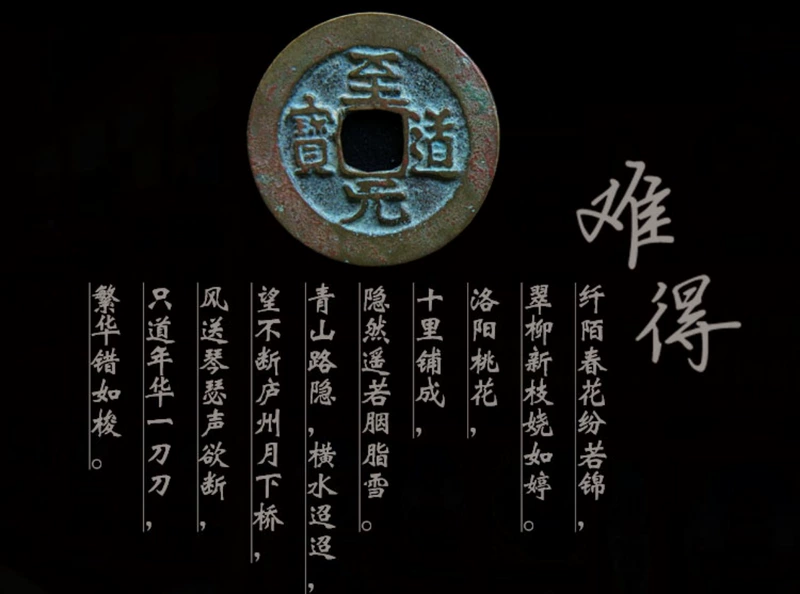 至道元寳
难得
纤陌春花纷若锦，
翠柳新枝娆如婷。
洛阳桃花，
十里铺成，
隐然遥若胭脂雪。
青山路隐，横水迢迢，
望不断庐州月下桥，
风送琴瑟声欲断，
只道年华一刀刀，
繁华错如梭。